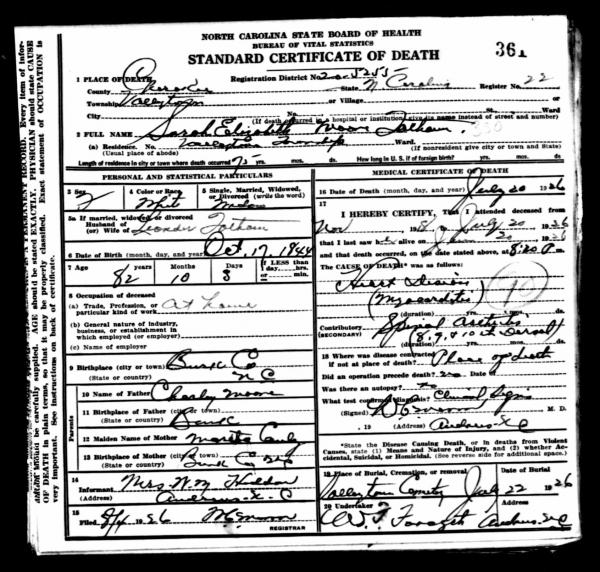 NORTH CAROLINA STATE BOARD OF HEALTH
BUREAU OF VITAL STATISTICS
STANDARD CERTIFICATE OF DEATH
361
1 PLACE OF DEATH
Registration District No. 20-5255
County Cherokee State N Carolina Register No. 22
Township Valleytown or Village or
City No. St. Ward
(If death occurred in a hospital or institution give its name instead of street and number)
2 FULL NAME Sarah Elizabeth Moore Tatham
(a) Residence. No. Valleytown Township Ward.
(Usual place of abode) (If nonresident give city or town and State)
Length of residence in city or town where death occurred How long in U. S. if of foreign birth?
PERSONAL AND STATISTICAL PARTICULARS
3 Sex F
4 Color or Race White
5 Single, Married, Widowed, or Divorced (write the word) Widow
5a If married, widowed or divorced
Husband of
(or) Wife of Leander Tatham
6 Date of Birth (month, day, and year) Oct, 17, 1844
7 Age 82 Months 10 Days 3 If LESS than 1 day, hrs. or min.
8 Occupation of deceased
(a) Trade, Profession, or particular kind of work At Home
(b) General nature of industry, business, or establishment in which employed (or employer)
(c) Name of employer
9 Birthplace (city or town) Burke Co
(State or country) N C
Parents
10 Name of Father Charly Moore
11 Birthplace of Father (city or town)
(State or country) Burk
12 Maiden Name of Mother
13 Birthplace of Mother (city or town)
(State or country) Burk Co
14 Informant Mrs. W. M.
(Address) Andrews N. C
15 Filed 8/4 1926
REGISTRAR
MEDICAL CERTIFICATE OF DEATH
16 Date of Death (month, day, and year) July 20 1926
17 I HEREBY CERTIFY, That I attended deceased from
Nov 18 to July 20 1926
that I last saw h alive on 20 1926
and that death occurred, on the date stated above, at 8:20 P m.
The CAUSE OF DEATH* was as follows:
Heart
(Myocarditis)
(duration)
Contributory Spinal
(SECONDARY) (8, 9, & 10 Dorsal)
(duration)
18 Where was disease contracted
if not at place of death? Place of death
Did an operation precede death? no
Was there an autopsy? no
What test confirmed diagnosis? Clinical Signs
(Signed) M. D.
19 (Address) Andrews N C
*State the Disease Causing Death, or in deaths from Violent Causes, state (1) Means and Nature of Injury, and (2) whether Accidental, Suicidal, or Homicidal. (See reverse side for additional space).
19 Place of Burial, Cremation, or removal Date of Burial
Valleytown Cemetery July 22 1926
20 Undertaker W. T. Forsyth Andrews N C